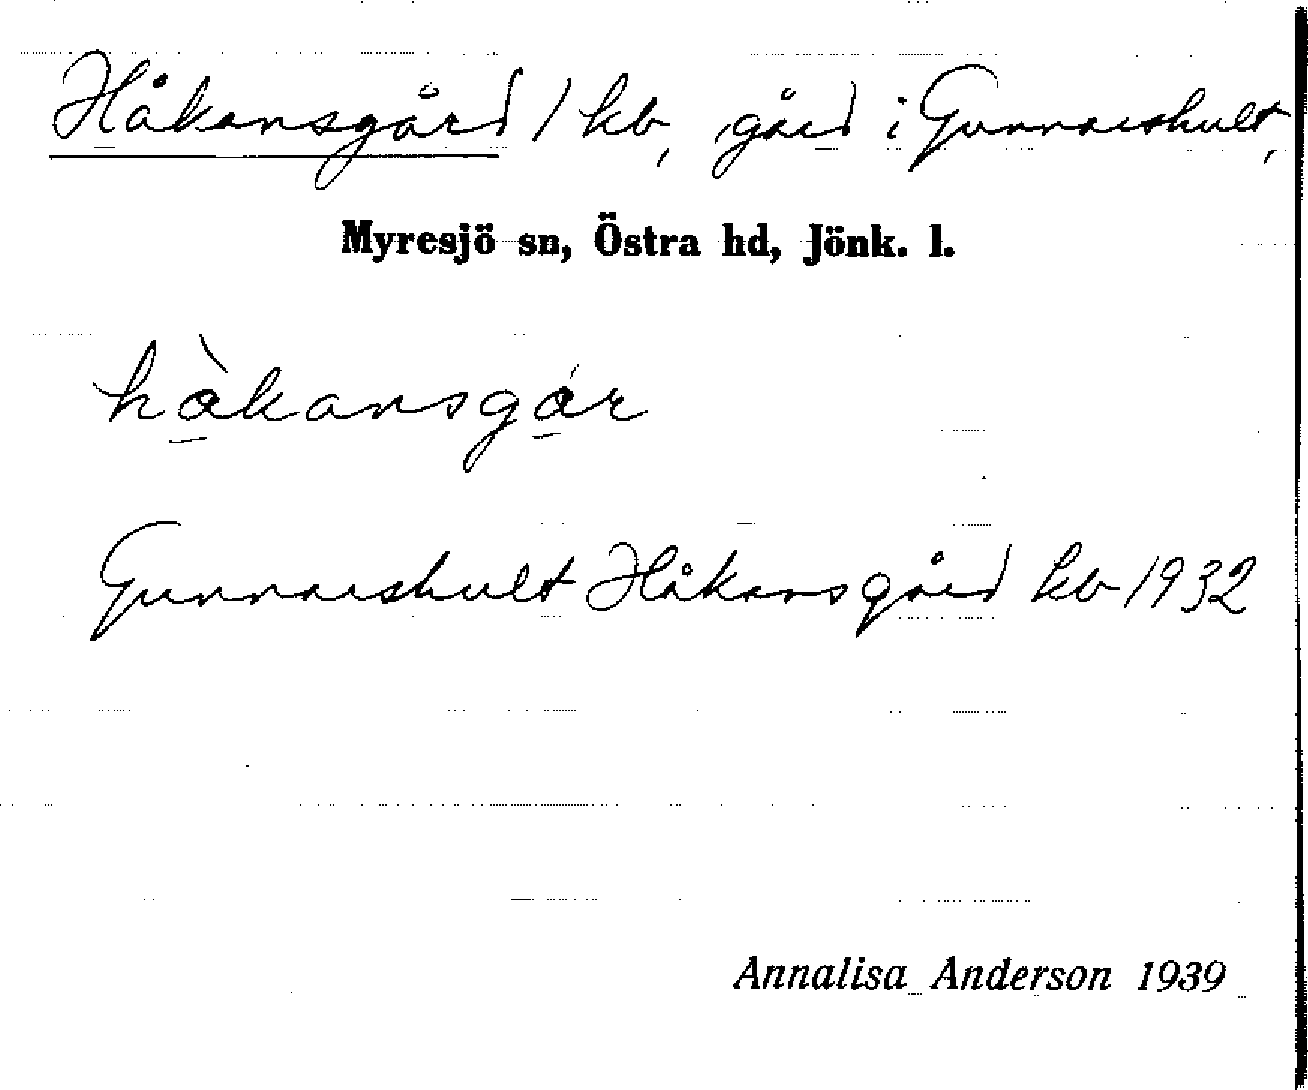 Håkansgård / kb, gård i Gunnarshult,
Myresjö sn, Östra hd, Jönk. l.
hàkansgár
Gunnarshult Håkansgård kb 1932
Annalisa Anderson 1939